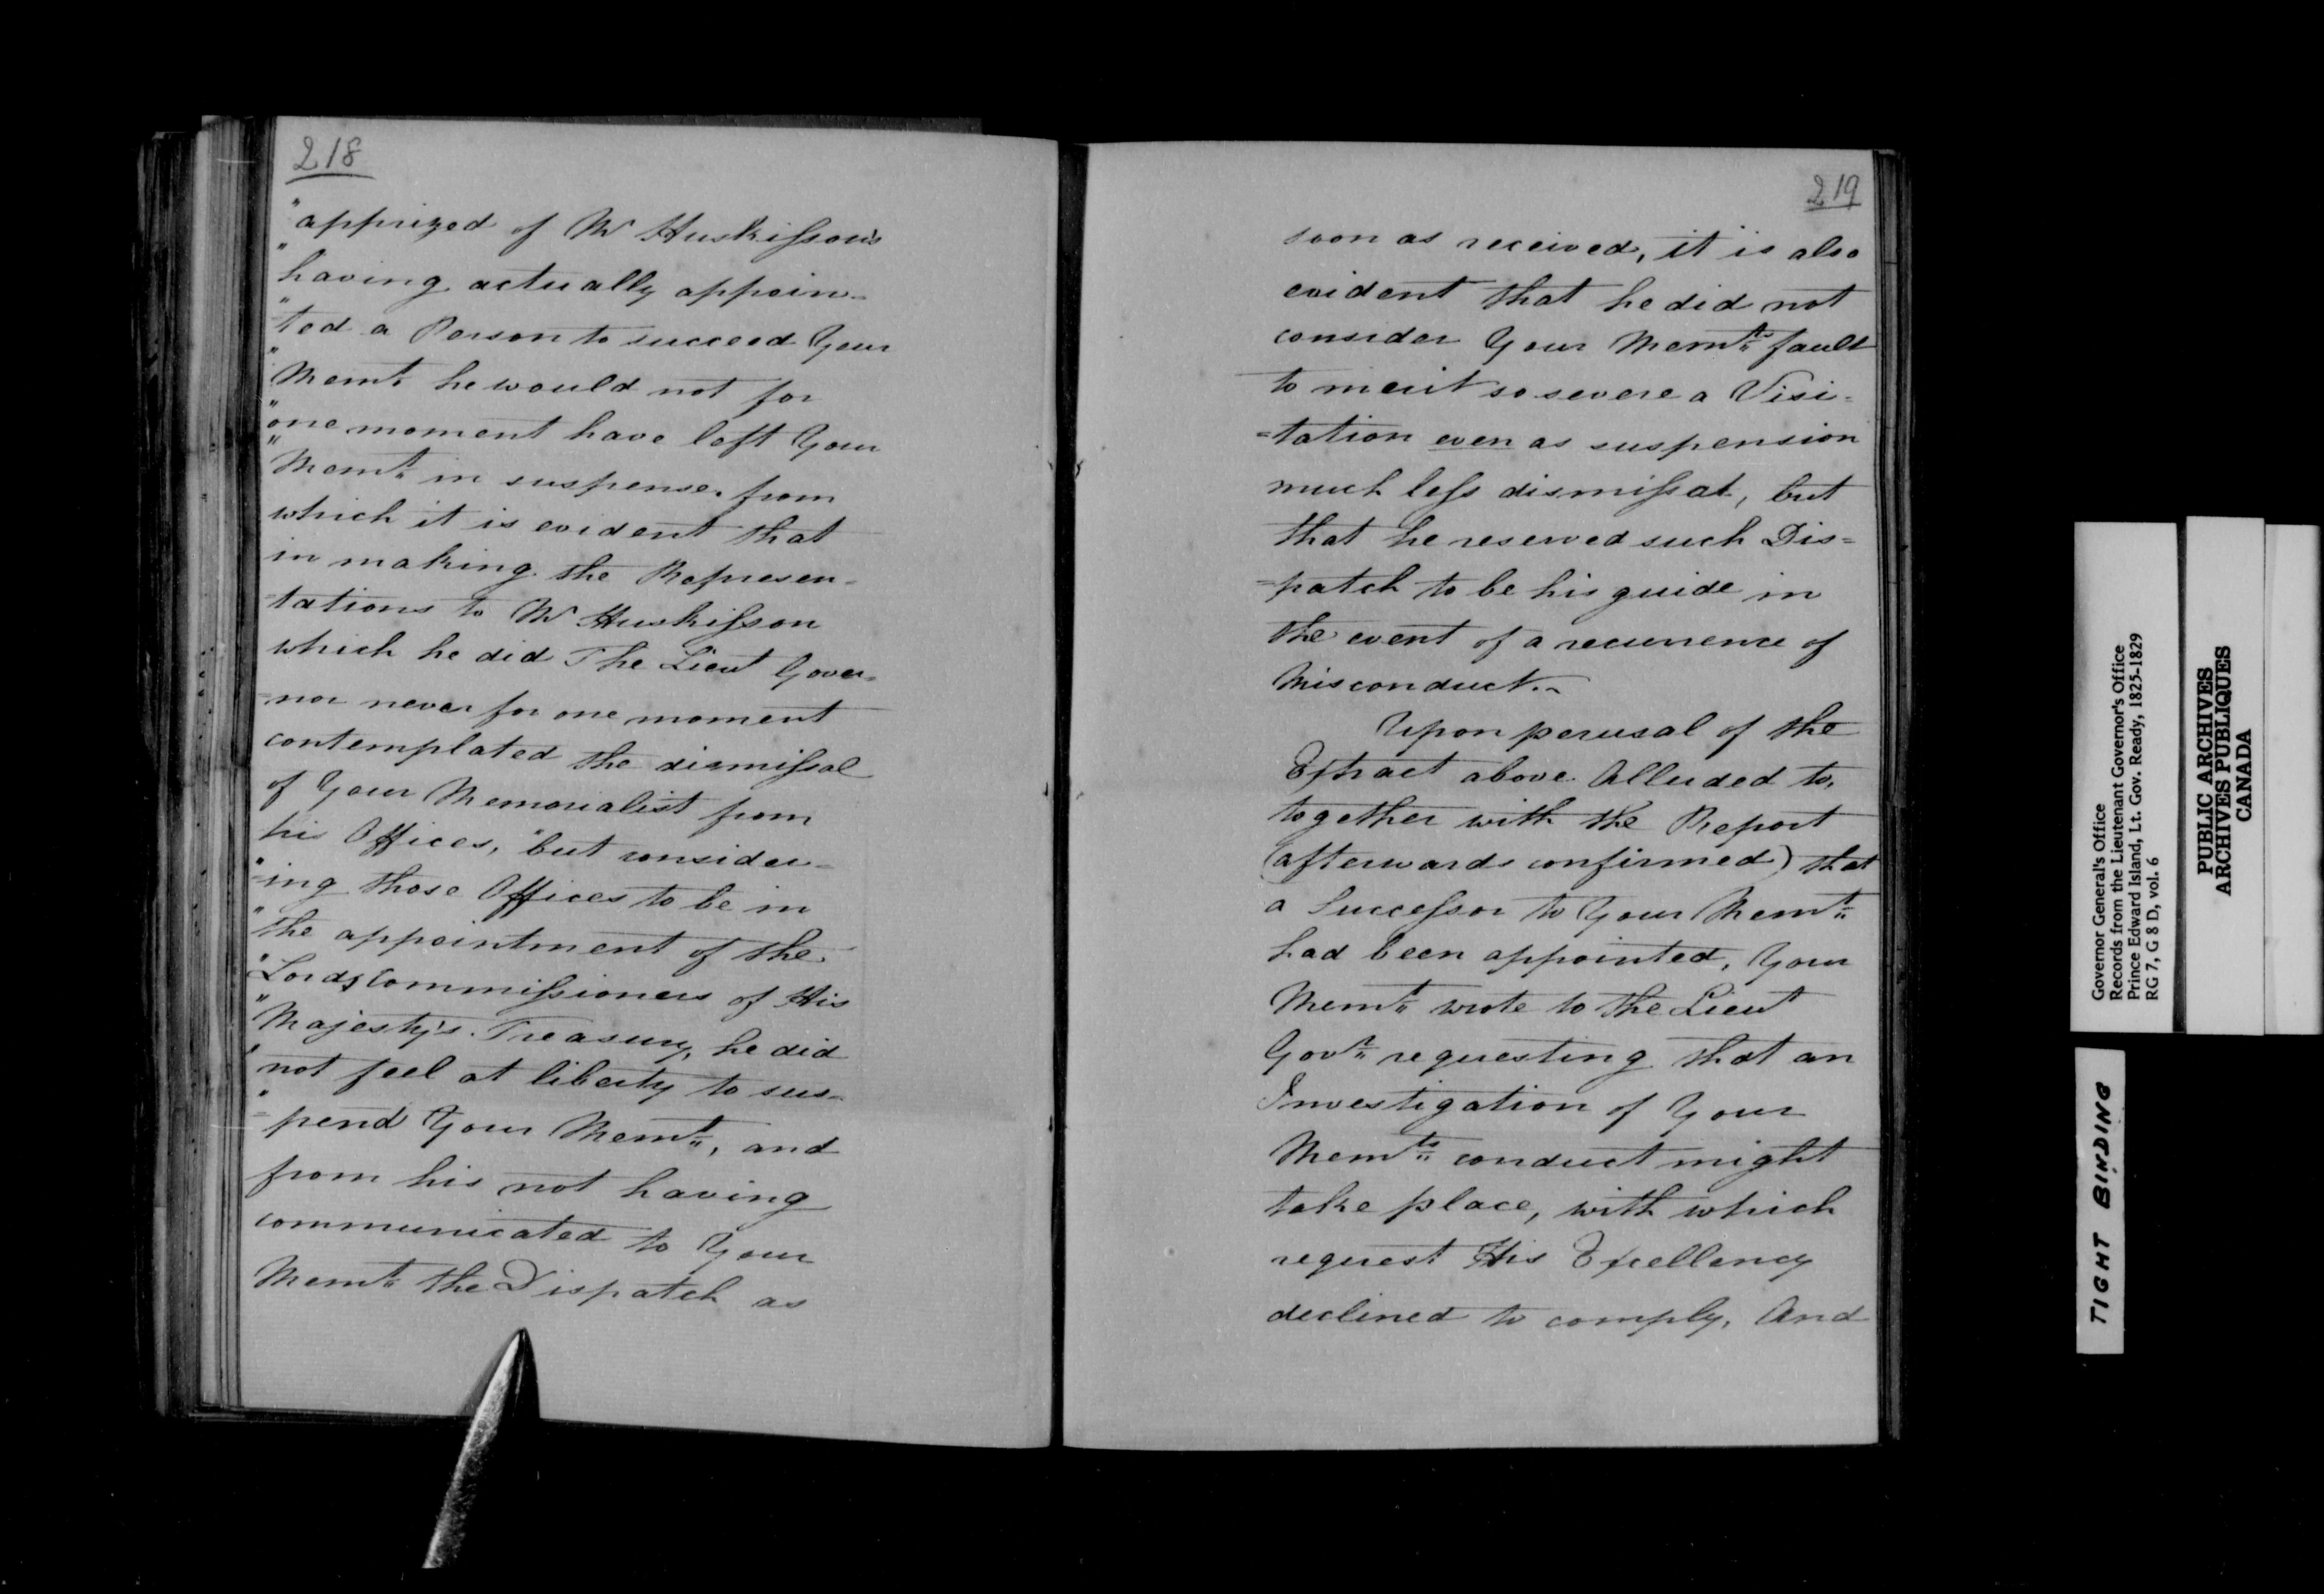 218
"apprized of Mr Huskisson's
"having actually appoin-
"ted a Person to succeed Your
"Memt. he would not for
"one moment have left Your
"Memt. in suspense. from
which it is evident that
in making the Represen-
=tations to Mr Huskisson
which he did The Lieut Gover-
=nor never for one moment
contemplated the dismissal
of Your Memorialist from
his Offices, "but consider-
"=ing those Offices to be in
"the appointment of the
"Lords Commissioners of His
"Majesty's Treasury, he did
"not feel at liberty to sus-
"=pend Your Memt., and
from his not having
communicated to Your
Memt. the Dispatch as
219
soon as received, it is also
evident that he did not
consider Your Memts. fault
to merit so severe a Visi=
=tation even as suspension
much less dismissal, but
that he reserved such Dis=
=patch to be his guide in
the event of a recurrence of
Misconduct.
Upon perusal of the
Extract above Alluded to,
together with the Report
(afterwards confirmed) that
a Successor to Your Memt.
had been appointed, Your
Memt. wrote to The Lieut
Govr. requesting that an
Investigation of Your
Memts. conduct might
take place, with which
request His Excellency
declined to comply. And
Governor General's Office
Records from the Lieutenant Governor's Office
Prince Edward Island, Lt. Gov. Ready, 1825-1829
RG 7, G 8 D, vol. 6
PUBLIC ARCHIVES
ARCHIVES PUBLIQUES
CANADA
TIGHT BINDING